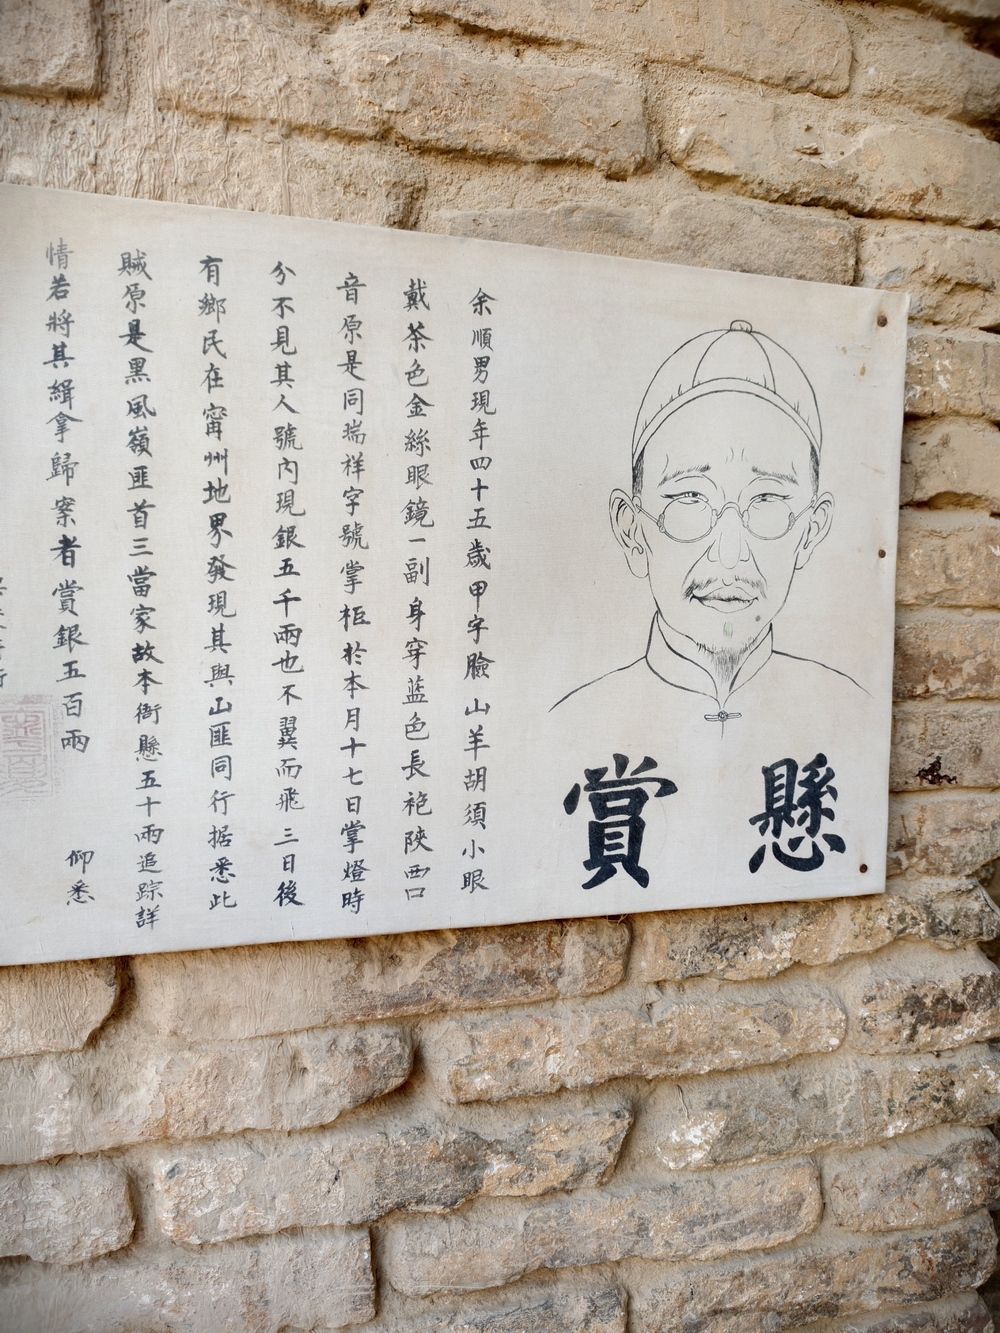 懸賞
余順男現年四十五歲甲字臉山羊胡須小眼
戴茶色金絲眼鏡一副身穿蓝色長袍陝西口
音原是同瑞祥字號掌柜於本月十七日掌燈時
分不見其人號內現銀五千兩也不翼而飛三日後
有鄉民在甯州地界發現其與山匪同行据悉此
賊原是黑風嶺匪首三當家故本衙懸五十兩追踪詳
情若將其緝拿歸案者賞銀五百兩
仰悉